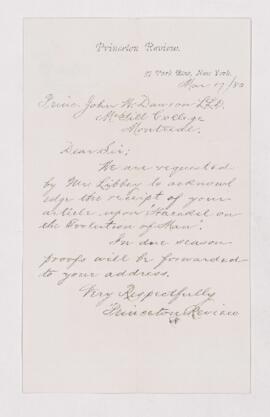 Princeton Review.
37 Park Row, New York.
Mar 17/80
Princ. John W. Dawson LLD.
McGill College
Montreal.
Dear Sir;
We are requested
by Mr. Libbey to acknowl
edge the receipt of your
article upon "Haeckel on
the Evolution of Man".
In due season
proofs will be forwarded
to your address.
Very Respectfully
"Princeton Review